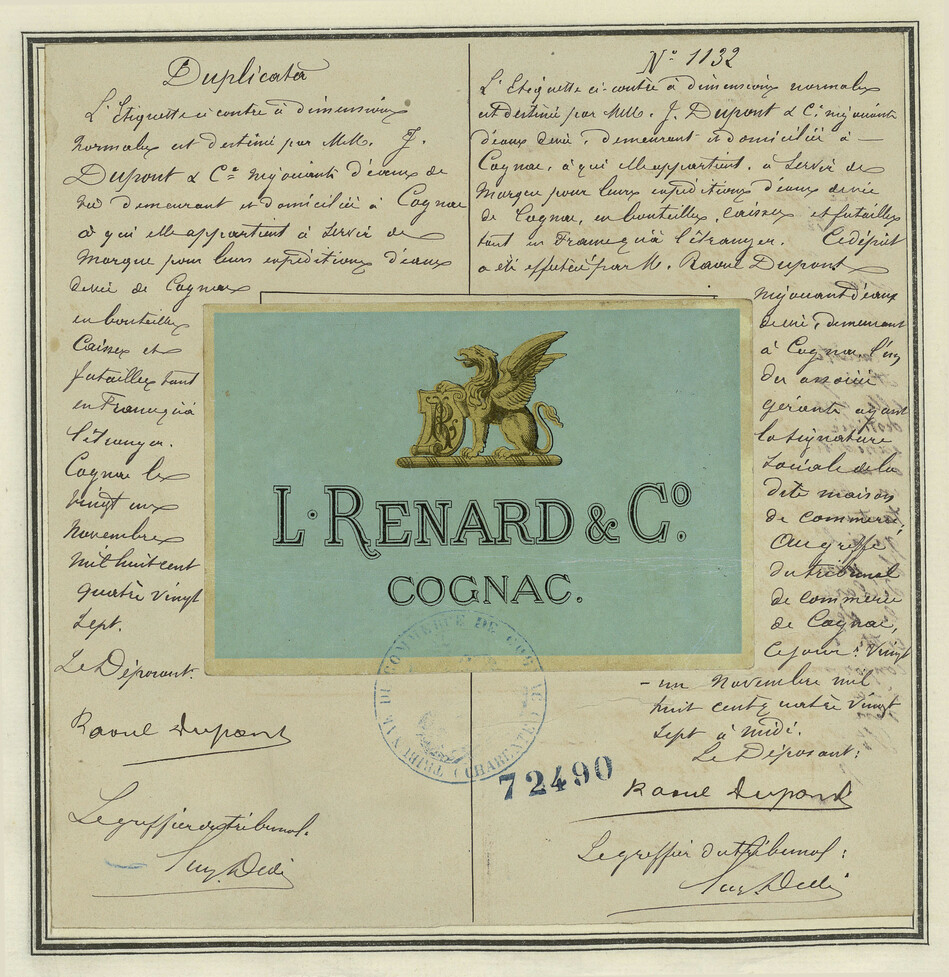 Duplicata
L'Etiquette ci contre à dimensions
normales est destiné par MM. J.
Dupont & Cie négociants d'eaux de
vie demeurant et domicilié à Cognac
à qui elle appartient à servir de
Marque pour leurs expéditions d'eaux
devie de Cognac
en bouteilles
Caisses et
futailles tant
en France qu'à
l'étranger.
Cognac le
vingt un
Novembre
mil huit cent
quatre vingt
sept.
Le Déposant.
Raoul Dupont
Le greffier du tribunal.
N° 1132
L'Etiquette ci-contre à dimensions normales
est destiné par MM. J. Dupont & Cie négociants
d'eaux devie, demeurant et domicilié à —
Cognac, à qui elle appartient, à servir de
Marque pour leurs expéditions d'eaux devie
de Cognac, en bouteilles, caisses et futailles
tant en France qu'à l'étranger. Ce dépôt
a été effectué par M. Raoul Dupont
négociant d'eaux
devie, demeurant
à Cognac, l'un
des associé
gérants ayant
la signature
sociale de la
dite maison
de commerce,
Au greffe
du tribunal
de commerce
de Cognac,
Ce jour: Vingt
- un Novembre mil
huit cent quatre vingt
sept à midi.
Le Déposant:
Raoul Dupont
Le greffier du tribunal:
L·RENARD & Co.
COGNAC.
TRIBUNAL DE COMMERCE DE COGNAC
(CHARENTE)
72490